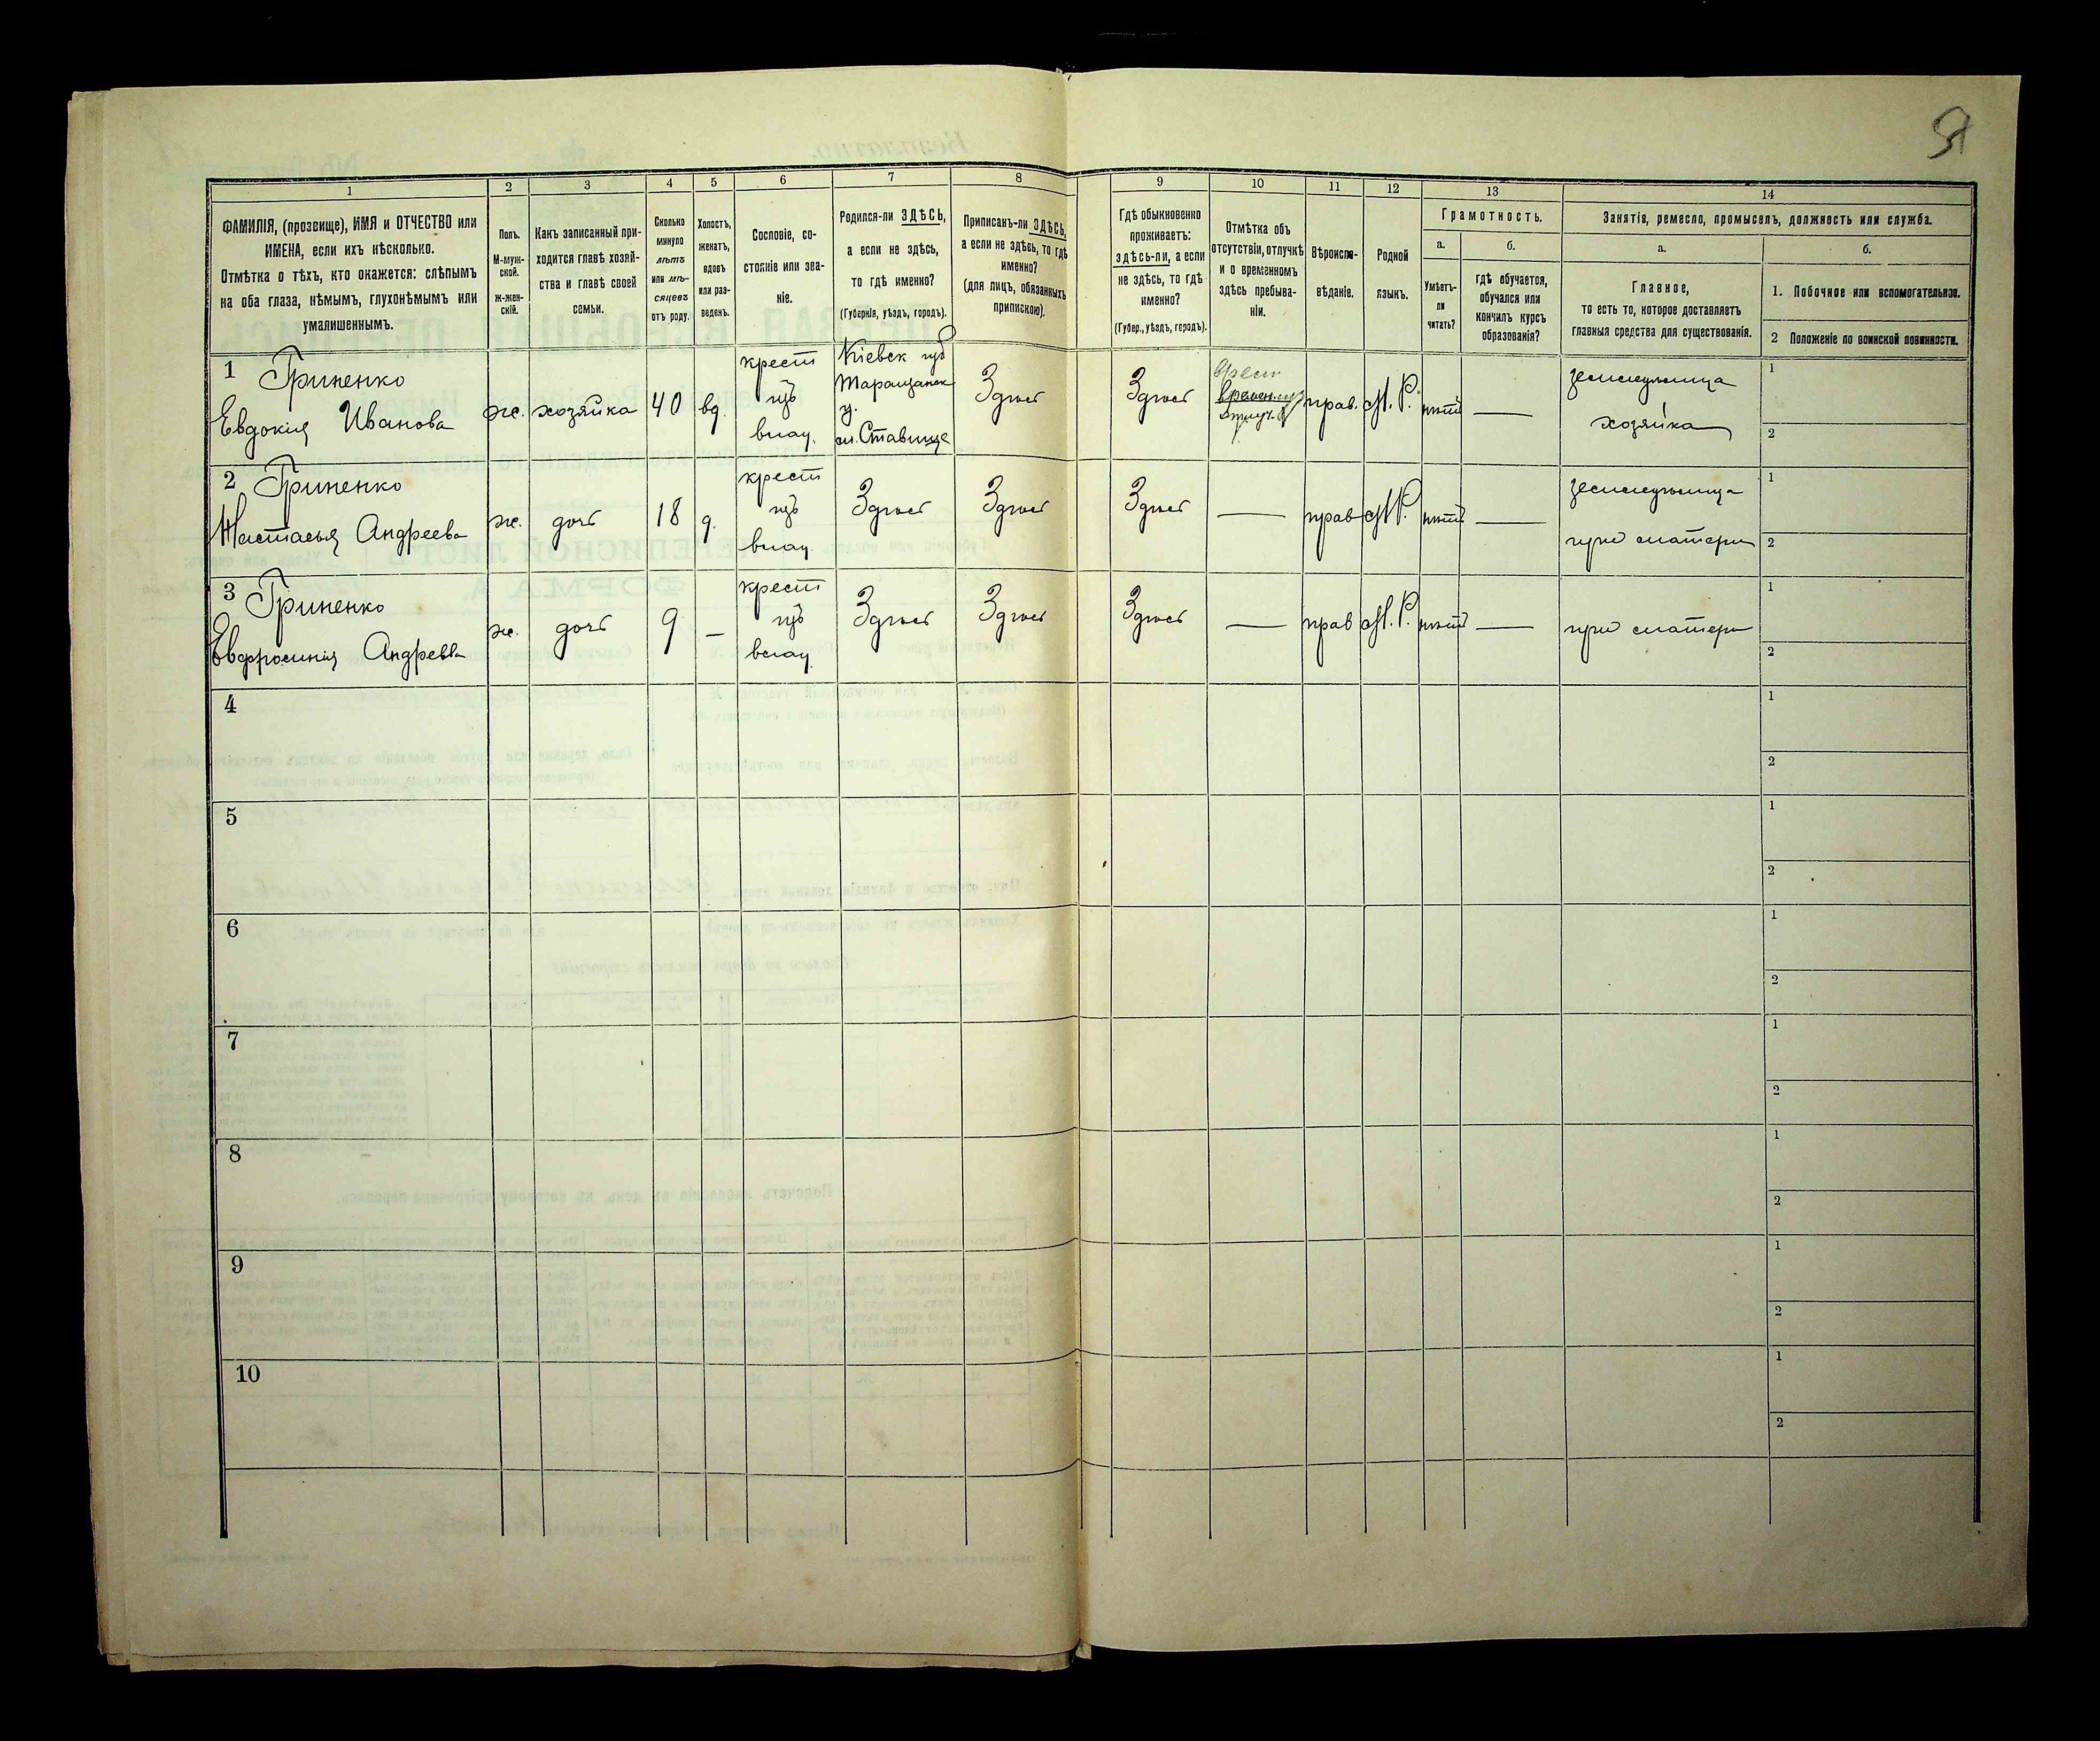 1 2 3 4 5 6 7 8 9 10 11 12 13 14
ФАМИЛІЯ, (прозвище), ИМЯ и ОТЧЕСТВО или
ИМЕНА, если ихъ нѣсколько.
Отмѣтка о тѣхъ, кто окажется: слѣпымъ
на оба глаза, нѣмымъ, глухонѣмымъ или
умалишеннымъ.
Полъ.
М-муж-
ской.
ж-жен-
скій.
Какъ записанный при-
ходится главѣ хозяй-
ства и главѣ своей
семьи.
Сколько
минуло
лѣтъ
или мѣ-
сяцевъ
отъ роду.
Холостъ,
женатъ,
вдовъ
или раз-
веденъ.
Сословіе, со-
стояніе или зва-
ніе.
Родился-ли ЗДѢСЬ,
а если не здѣсь,
то гдѣ именно?
(Губернія, уѣздъ, городъ).
Приписанъ-ли ЗДѢСЬ,
а если не здѣсь, то гдѣ
именно?
(для лицъ, обязанныхъ
припискою).
Гдѣ обыкновенно
проживаетъ:
здѣсь-ли, а если
не здѣсь, то гдѣ
именно?
(Губер., уѣздъ, городъ).
Отмѣтка объ
отсутствіи, отлучкѣ
и о временномъ
здѣсь пребыва-
ніи.
Вѣроиспо-
вѣданіе.
Родной
языкъ.
Грамотность.
а.
Умѣетъ-
ли
читать?
б.
гдѣ обучается,
обучался или
кончилъ курсъ
образованія?
Занятія, ремесло, промыселъ, должность или служба.
а.
Главное,
то есть то, которое доставляетъ
главныя средства для существованія.
б.
1. Побочное или вспомогательное.
2 Положеніе по воинской повинности.
1 Гриненко
Евдокия Иванова
ж.
хозяйка
40
вд.
крест
изъ
влад.
Кіевск губ
Таращанск
у.
м. Ставище
Здѣсь
Здѣсь
прав.
М. Р.
нѣтъ
—
земледѣлица
хозяйка
1
2
2 Гриненко
Настасья Андреева
ж.
дочь
18
д.
крест
изъ
влад.
Здѣсь
Здѣсь
Здѣсь
—
прав
М Р.
нѣтъ
—
земледѣлица
при матери
1
2
3 Гриненко
Евфросинія Андреева
ж.
дочь
9
—
крест
изъ
влад.
Здѣсь
Здѣсь
Здѣсь
—
прав
М. Р.
нѣтъ
—
при матери
1
2
4
1
2
5
1
2
6
1
2
7
1
2
8
1
2
9
1
2
10
1
2